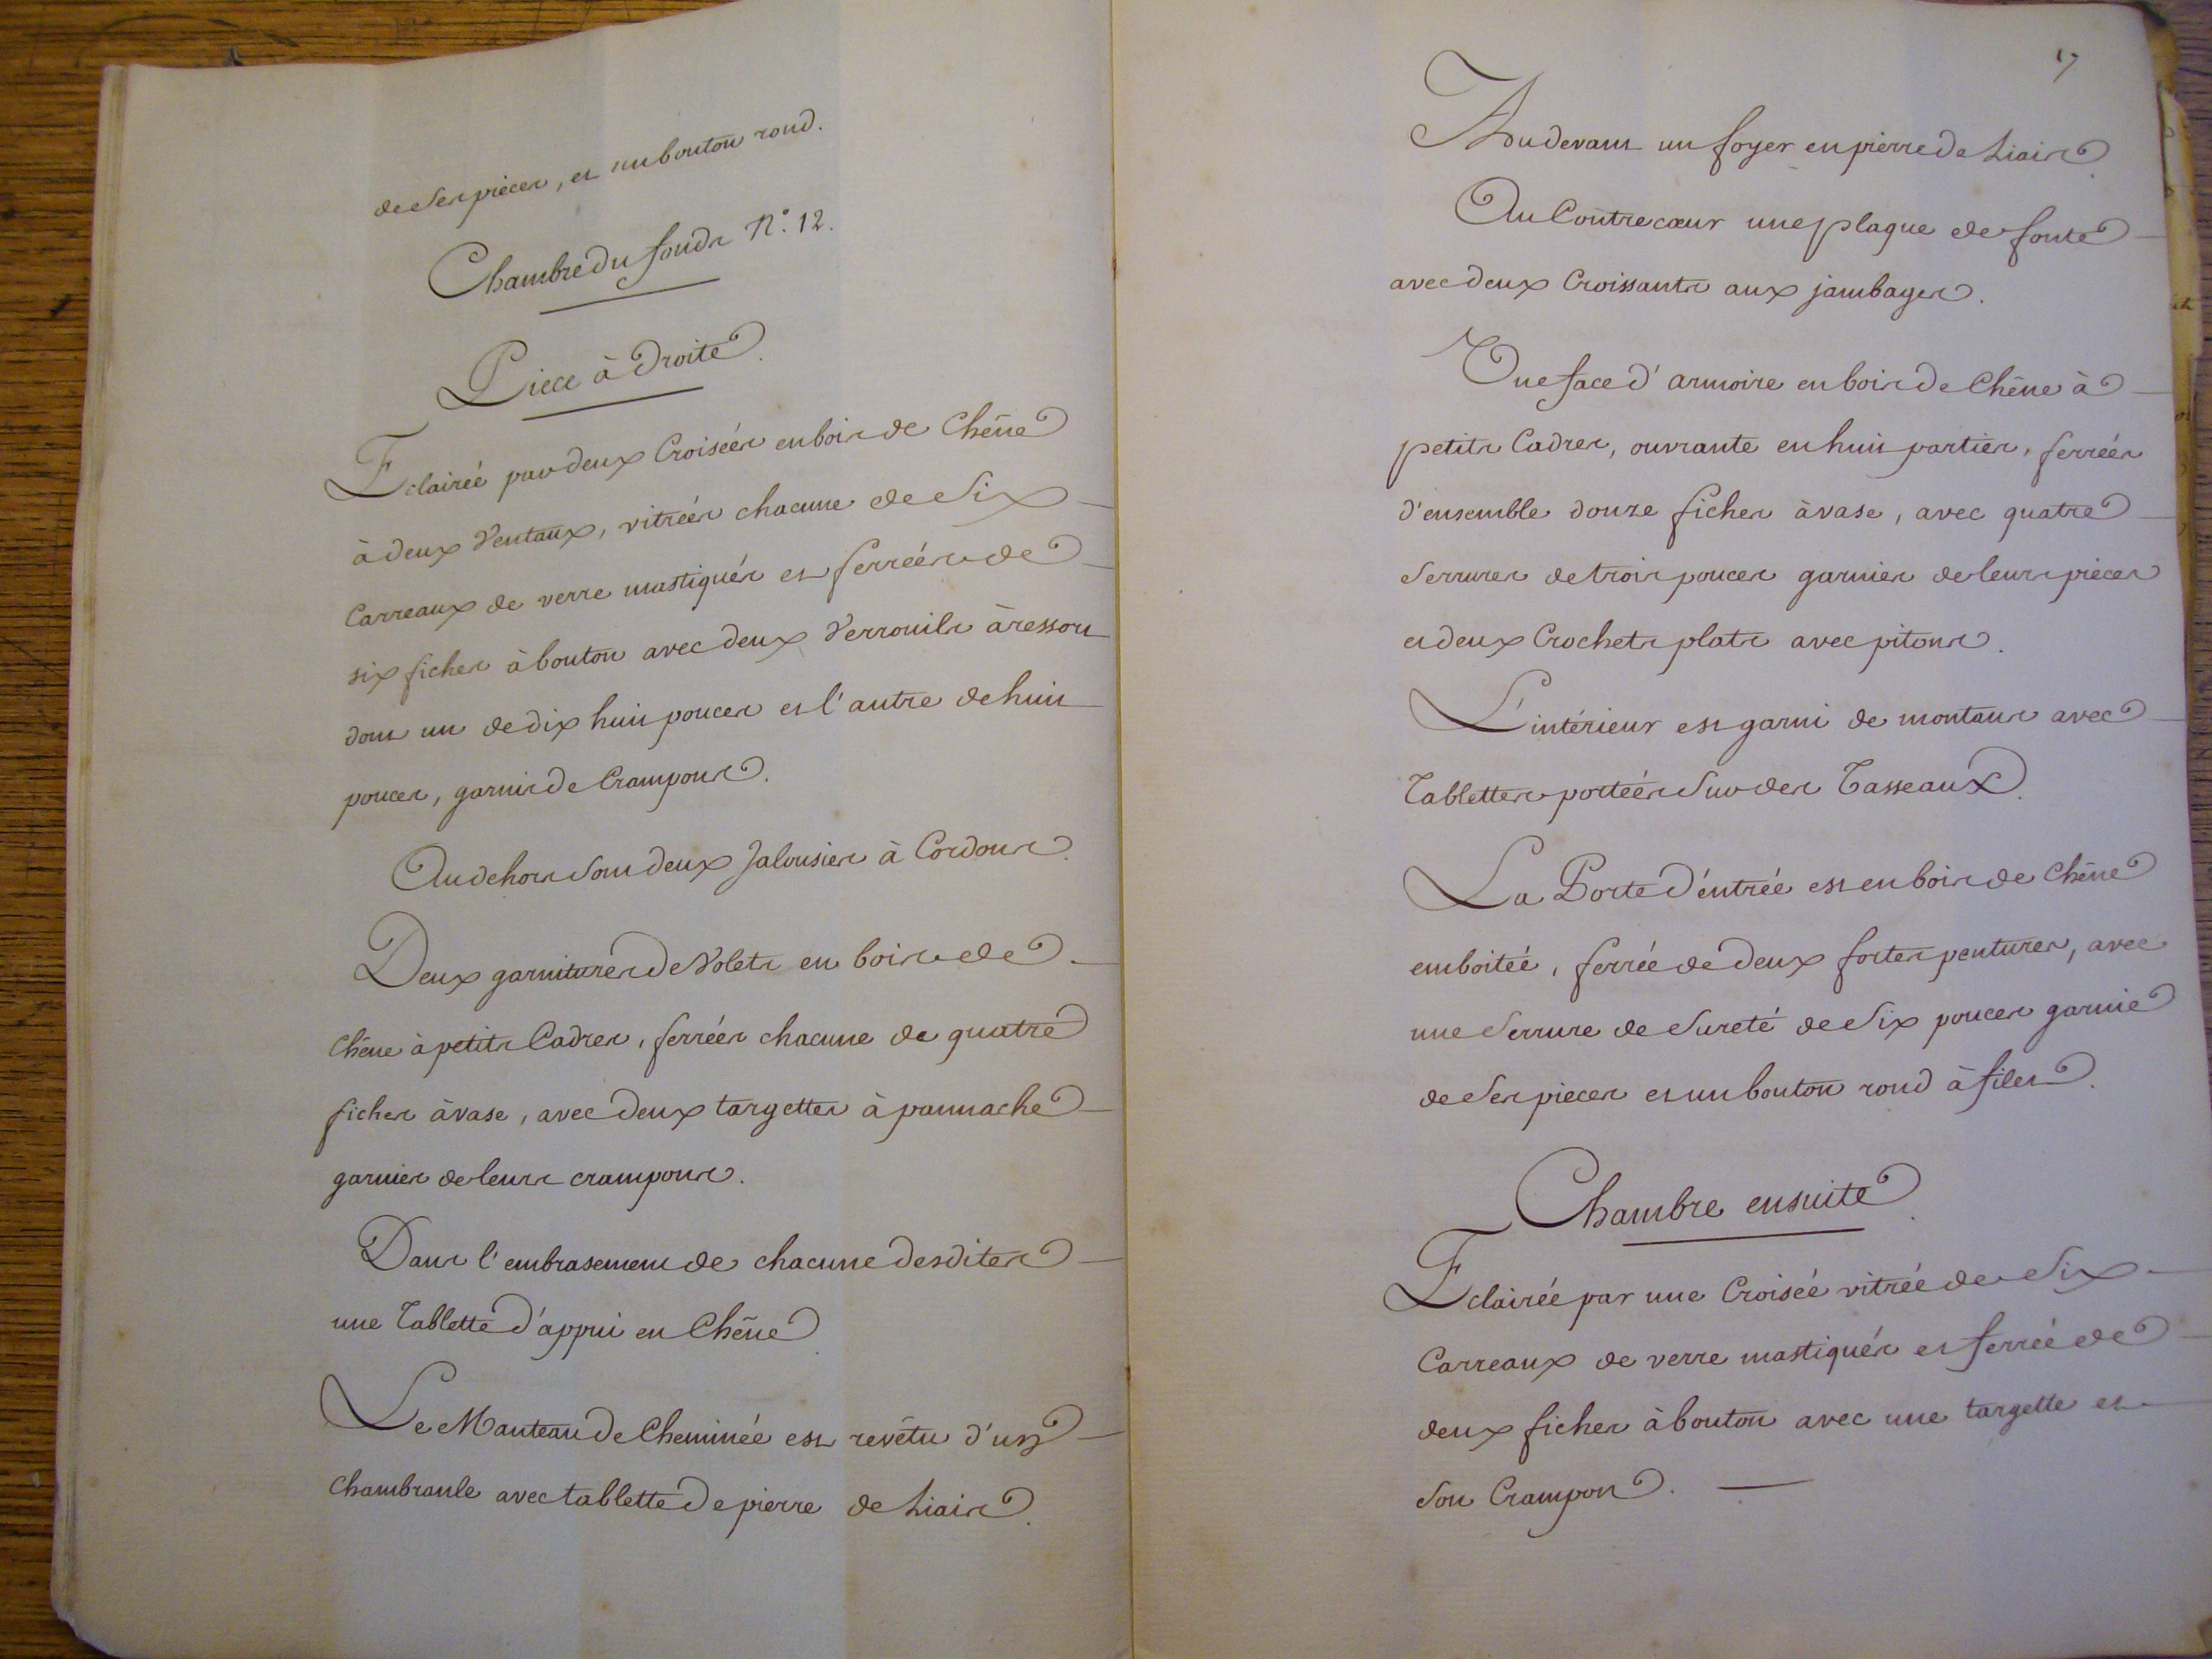 de Ses pièces, et un bouton rond.
Chambre du fonds N.° 12.
Piece à Droite.
Eclairée par deux Croisées en bois de Chêne
à deux Ventaux, vitrées chacune de Six
Carreaux de verre mastiqués et ferrées de
six fiches à bouton avec deux Verrouils à ressort
dont un de dix huit pouces et l'autre de huit
pouces, garnis de Crampons.
Au dehors Sont deux Jalousies à Cordons.
Deux garnitures de Volets en bois de
Chêne à petits Cadres, ferrées chacune de quatre
fiches à vase, avec deux targettes à pannache
garnies de leurs crampons.
Dans l'embrasement de chacune desdites
une Tablette d'appui en Chêne.
Le Manteau de Cheminée est revêtu d'un
Chambranle avec tablette de pierre de Liais.
17
Au devant un foyer en pierre de Liais.
Au Contrecœur une plaque de fonte
avec deux Croissants aux jambages.
Une face d'armoire en bois de Chêne à
petits Cadres, ouvrante en huit parties, ferrées
d'ensemble douze fiches à vase, avec quatre
Serrures de trois pouces garnies de leurs pièces
et deux Crochets plats avec pitons.
L'intérieur est garni de montans avec
Tablettes portées Sur des Tasseaux.
La Porte d'éntrée est en bois de Chêne
emboitée, ferrée de deux fortes pentures, avec
une Serrure de Sureté de Six pouces garnie
de Ses pieces et un bouton rond à filet.
Chambre ensuite.
Eclairée par une Croisée vitrée de Six
Carreaux de verre mastiqués et ferrée de
deux fiches à bouton avec une targette et
Son Crampon.